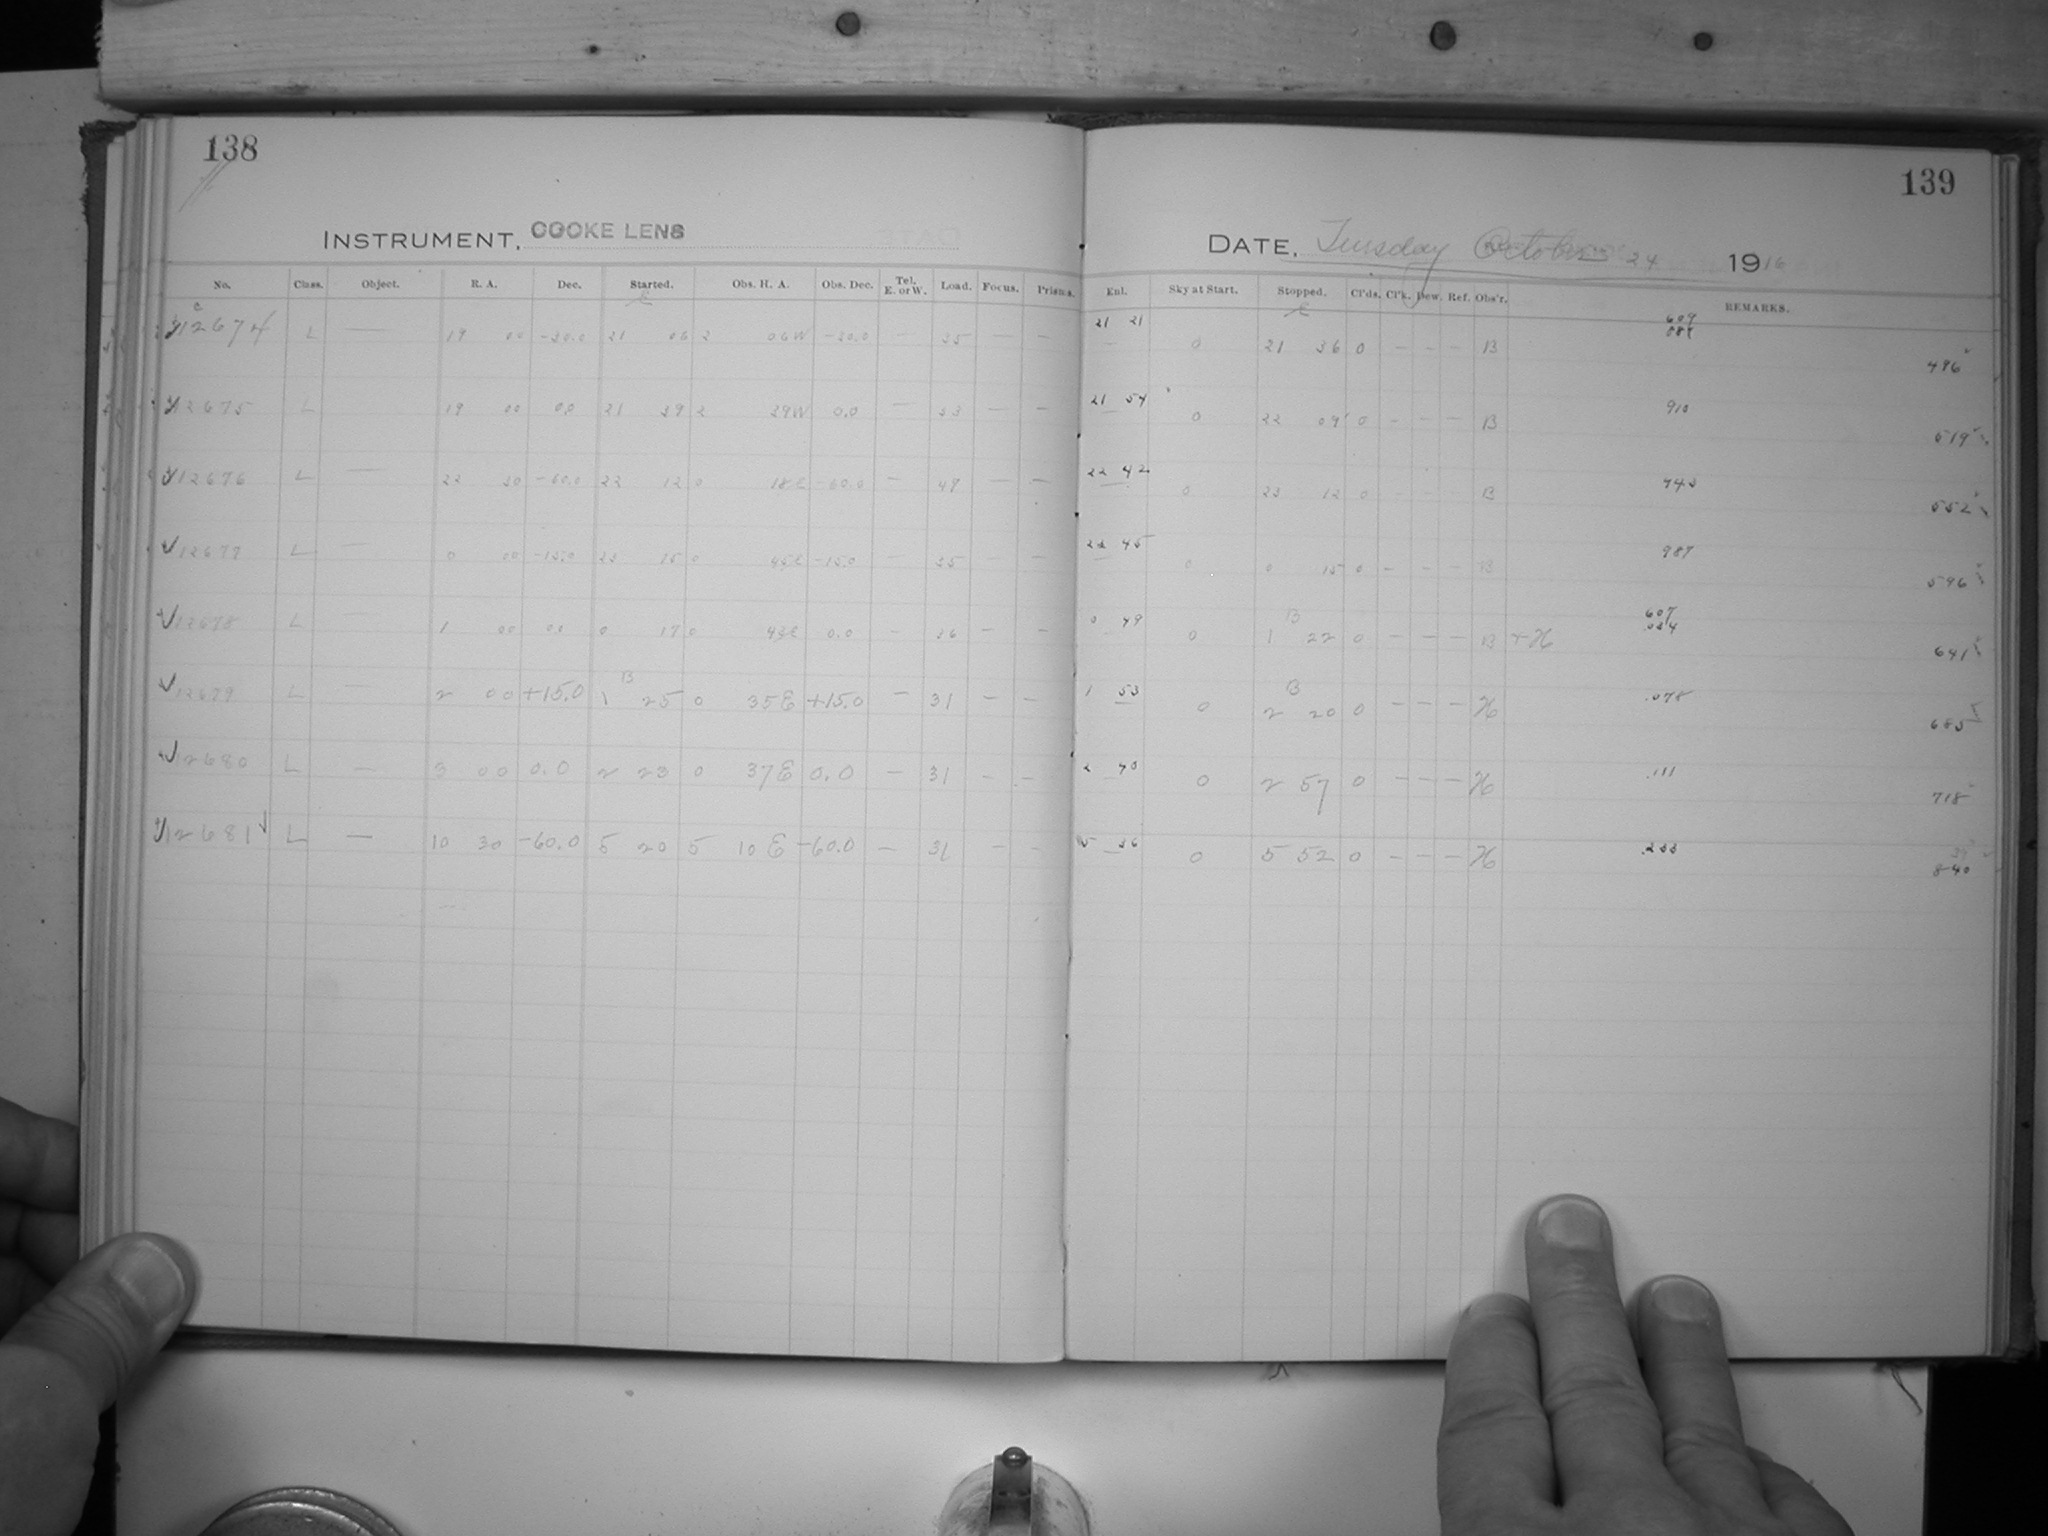 138
INSTRUMENT, COOKE LENS
No. Class. Object. R. A. Dec. Started. Obs. H. A. Obs. Dec. Tel. E. or W. Load. Focus. Prisms.
12674 L — 19 00 -30.0 21 06 2 06W -30.0 — 35 — —
12675 L — 19 00 0.0 21 39 2 39W 0.0 — 33 — —
12676 L — 22 30 -60.0 22 12 0 18E -60.0 — 49 — —
12677 L — 0 00 -15.0 23 15 0 45E -15.0 — 35 — —
12678 L — 1 00 0.0 0 17 0 43E 0.0 — 36 — —
12679 L — 2 00 +15.0 1 25 0 35E +15.0 — 31 — —
12680 L — 3 00 0.0 2 23 0 37E 0.0 — 31 — —
12681 L — 10 30 -60.0 5 20 5 10E -60.0 — 31 — —
139
DATE, Tuesday October 24 1916
Exl. Sky at Start. Stopped. Cl'ds. Cl'k. Dew. Ref. Obs'r. REMARKS.
21 21 0 21 36 0 — — — B 609 887 486
21 54 0 22 09 0 — — — B 910 519
22 42 0 23 12 0 B 943 552
45 0 0 15 0 — — — B 987 596
0 49 0 1 22 0 — — — B + H 607 .034 641
1 53 0 2 20 0 — — — H .078 685
2 40 0 2 57 0 — — — H .111 718
5 36 0 5 52 0 — — — H .233 840